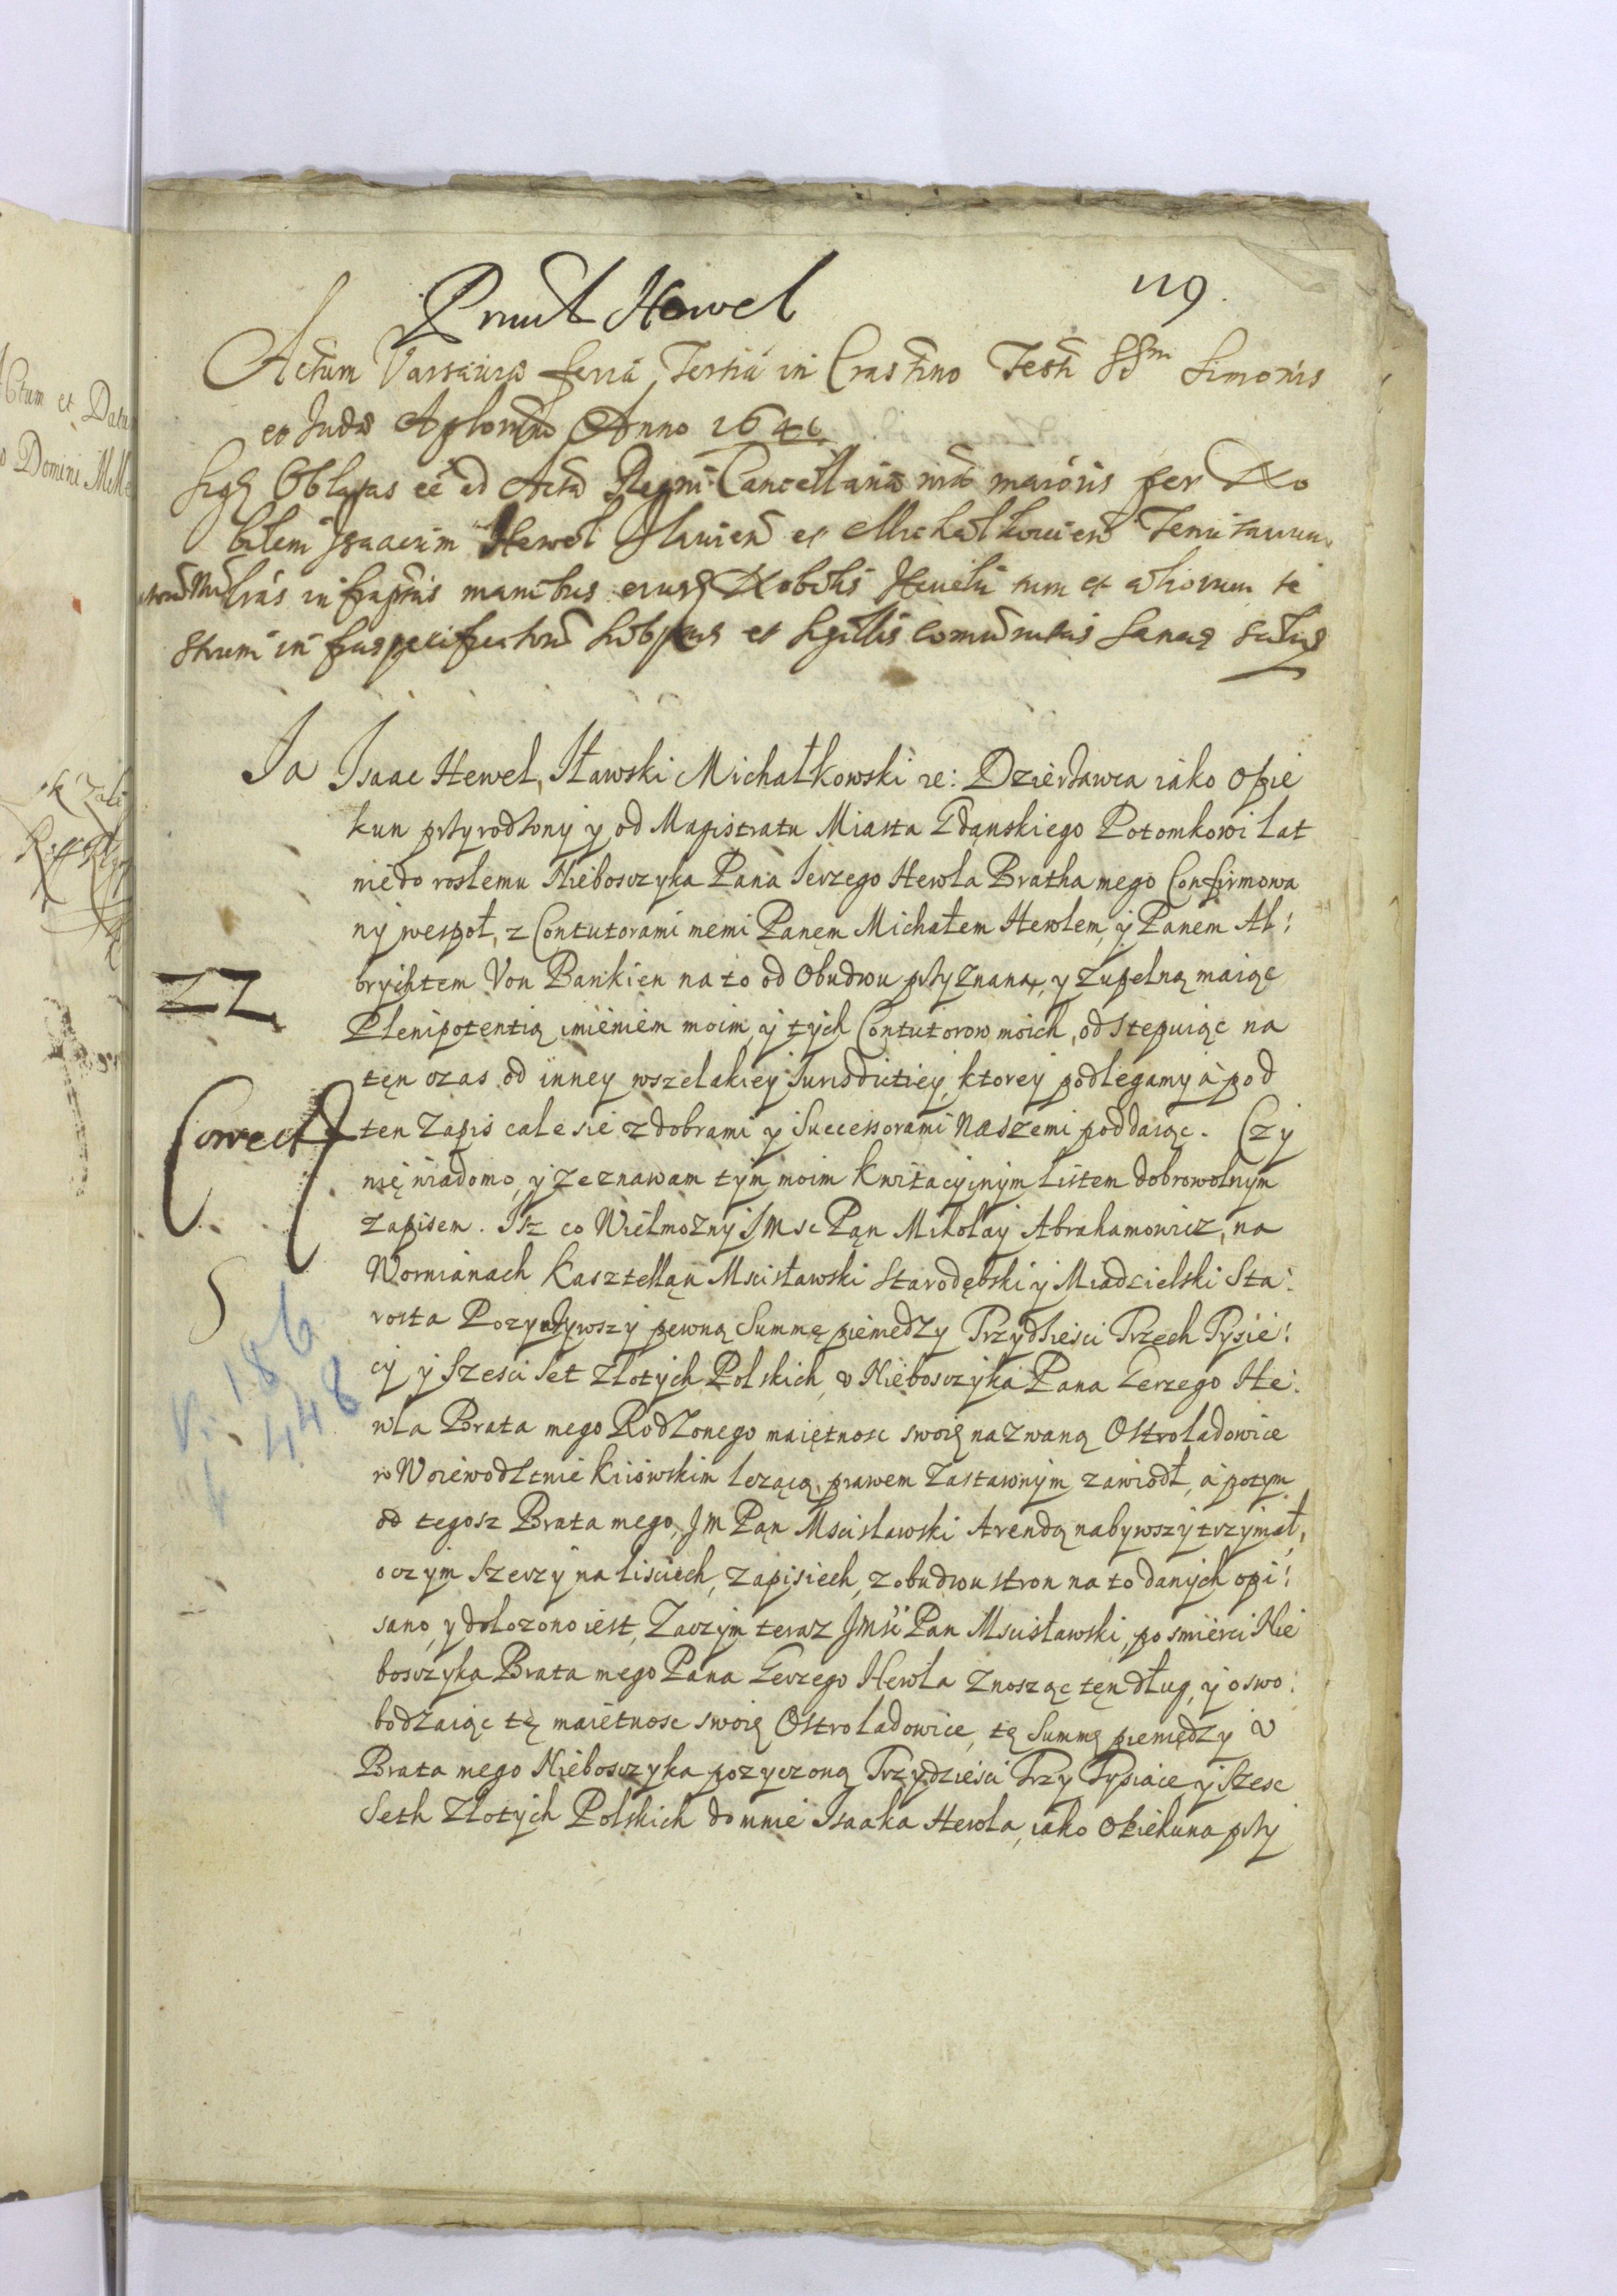 119.
Hewel
Actum Varsaviæ feria Tertia in Crastino Festi SSm Simonis
et Judæ Aplorum Anno 1641
Oblatas ee ad Acta Regni Cancellariæ mris maioris per No
bilem Isaacum Hewel et Michalkovien
infraptas manibus eiusq Nobilis Hevelii tum et aliorum te
stium infraspecificatorum et sigillis comunitas sanas salvas
Ja Isaac Hewel, Iławski Michałkowski ze: Dzierżawca iako Opie
kun przyrodzony y od Magistratu Miasta Gdanskiego Potomkowi lat
niedorosłemu Nieboszyka Pana Ierzego Hewla Bratha mego Confirmowa
ny wespoł, z Contutorami memi Panem Michałem Hewlem, y Panem Al:
brychtem Von Bankien na to od Obudwu przyznaną, y zupełną maiąc
ZZ
Plenipotentią imieniem moim, y tych Contutorow moich, odstępuiąc na
tęn czas od inney wszelakiey Iurisdictiey, ktorey podlegamy à pod
Correct
ten Zapis cale sie z dobrami y Successorami Naszemi poddaiąc. Czy
nię wiadomo, y zeznawam tym moim kwitacyinym listem dobrowolnym
zapisem. Isz co Wielmozny JMsc Pąn Mikołay Abrahamowicz, na
Wornianach Kasztelląn Mscisławski Starodębski y Miadzielski Sta:
rosta Pozyczywszy pewną Summę piemędzy Trzydziesci Trzech Tysie:
cy y szesci set Złotych Polskich, v Nieboszyka Pana Gerzego He:
V. 186
448
wla Brata mego Rodzonego maiętnosc swoię nazwaną Ostroladowice
w Woiewodztwie Kiiowskim lezącą, prawem Zastawnym zawiodł, à potym
od tegosz Brata mego, JM Pąn Mscisławski Arendą nabywszy trzymał,
o czym szerzy na lisciech, zapisiech, z obudwu stron na to danych opi:
sano, y dołozono iest, Zaczym teraz JMsc Pan Mscisławski, po smierci Nie
boszyka Brata mego Pana Gerzego Hewla znosząc tęn dług, y oswo:
bodzaiąc tę maietnosc swoię Ostroladowice, tę Summę piemędzy v
Brata mego Nieboszyka pozyczoną Trzydziesci Trzy Tysiące y szesc
Seth Złotych Polskich do mnie Isaaka Hewla, iako Opiekuna przy